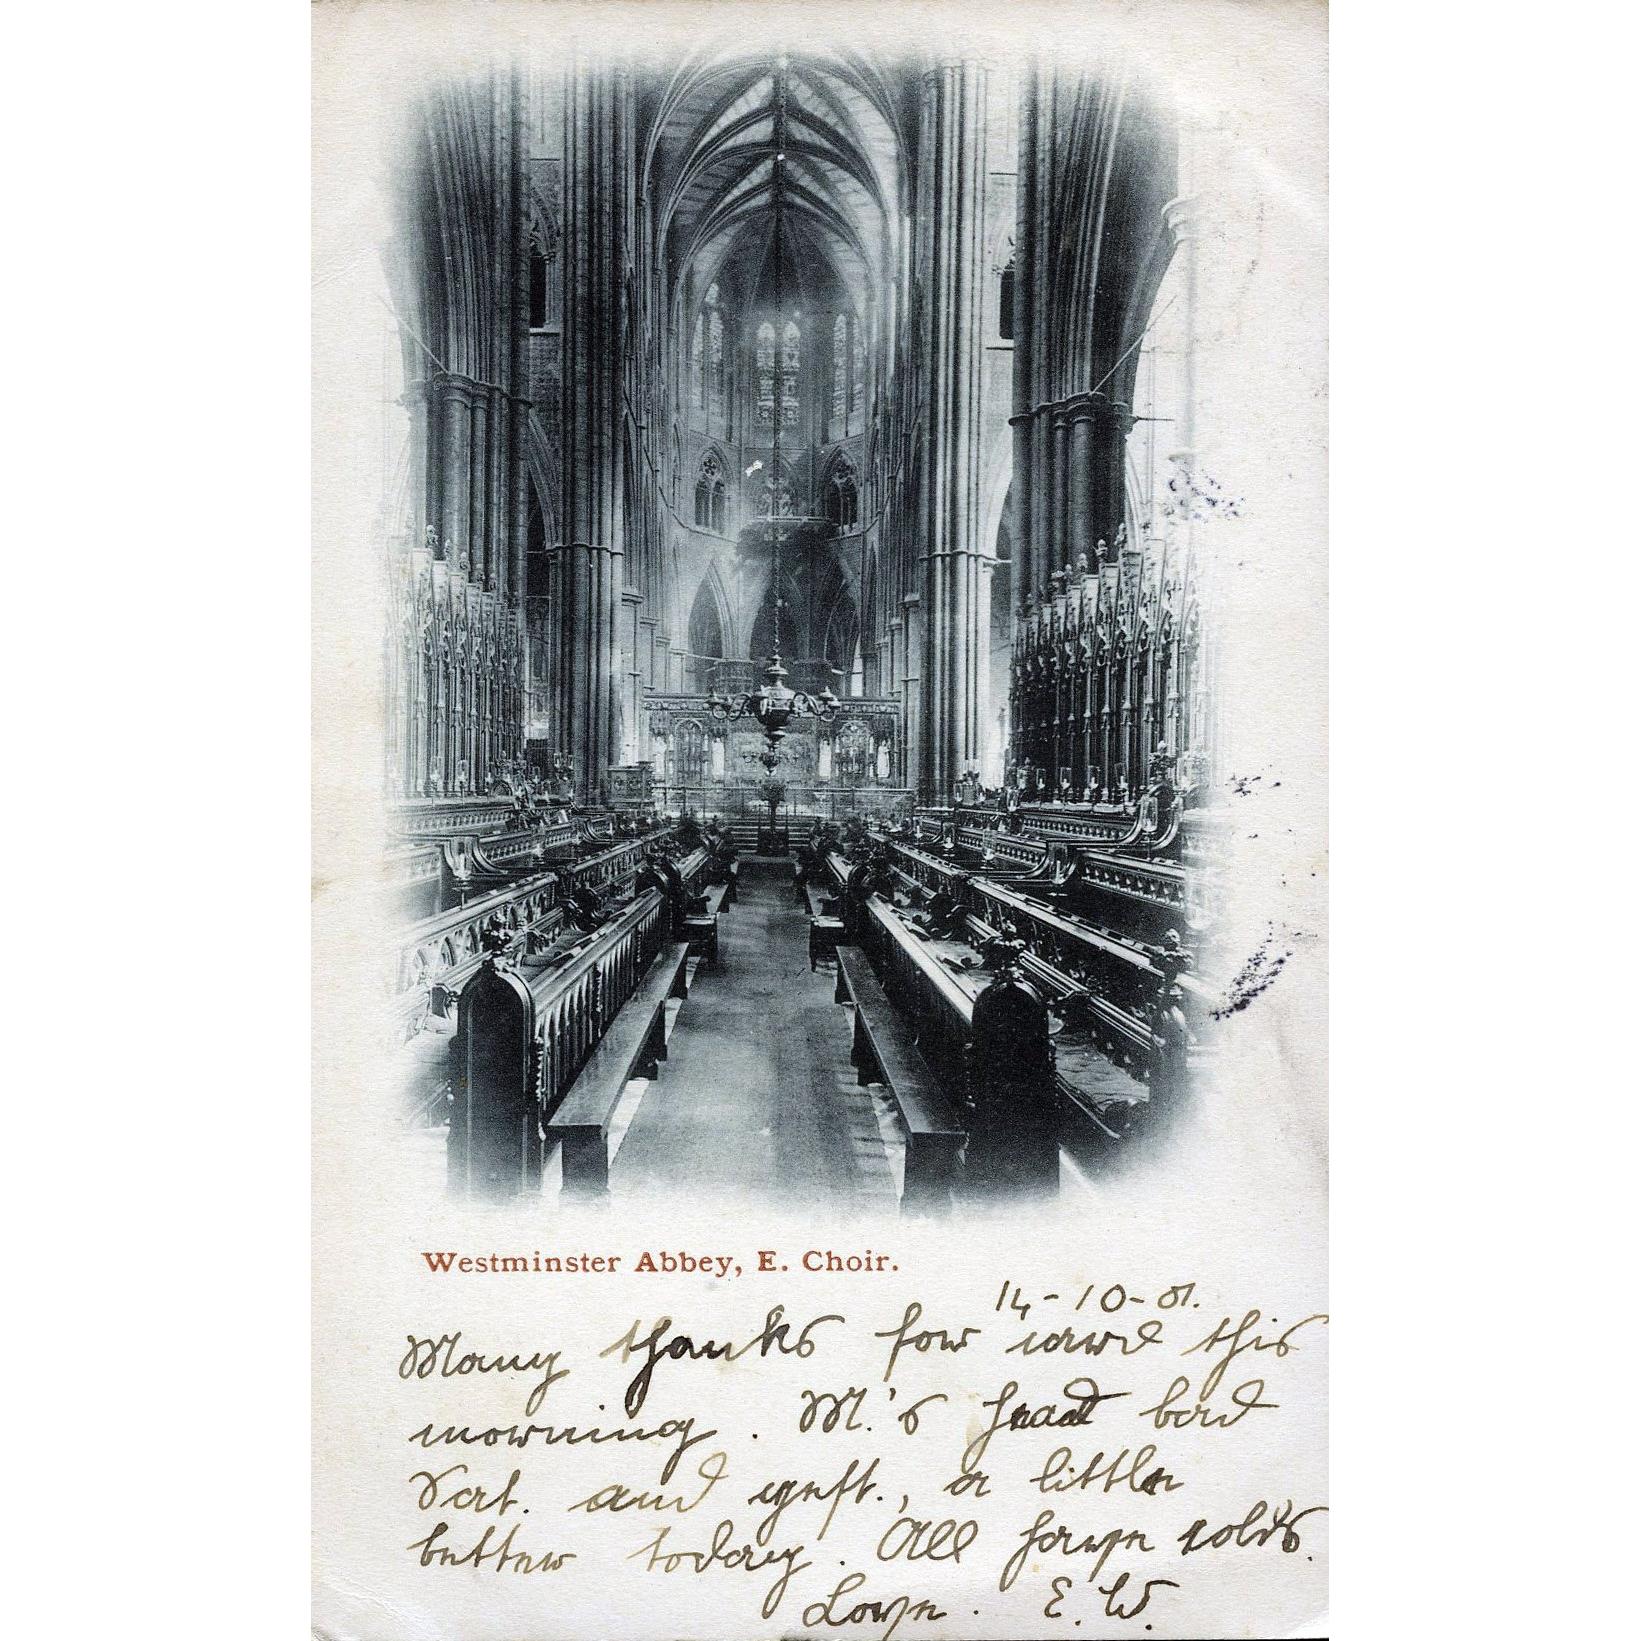 Westminster Abbey, E. Choir.
14-10-01.
Many thanks for card this
morning. M.'s head bad
Sat. and yest., a little
better today. All have colds.
Love. E.W.